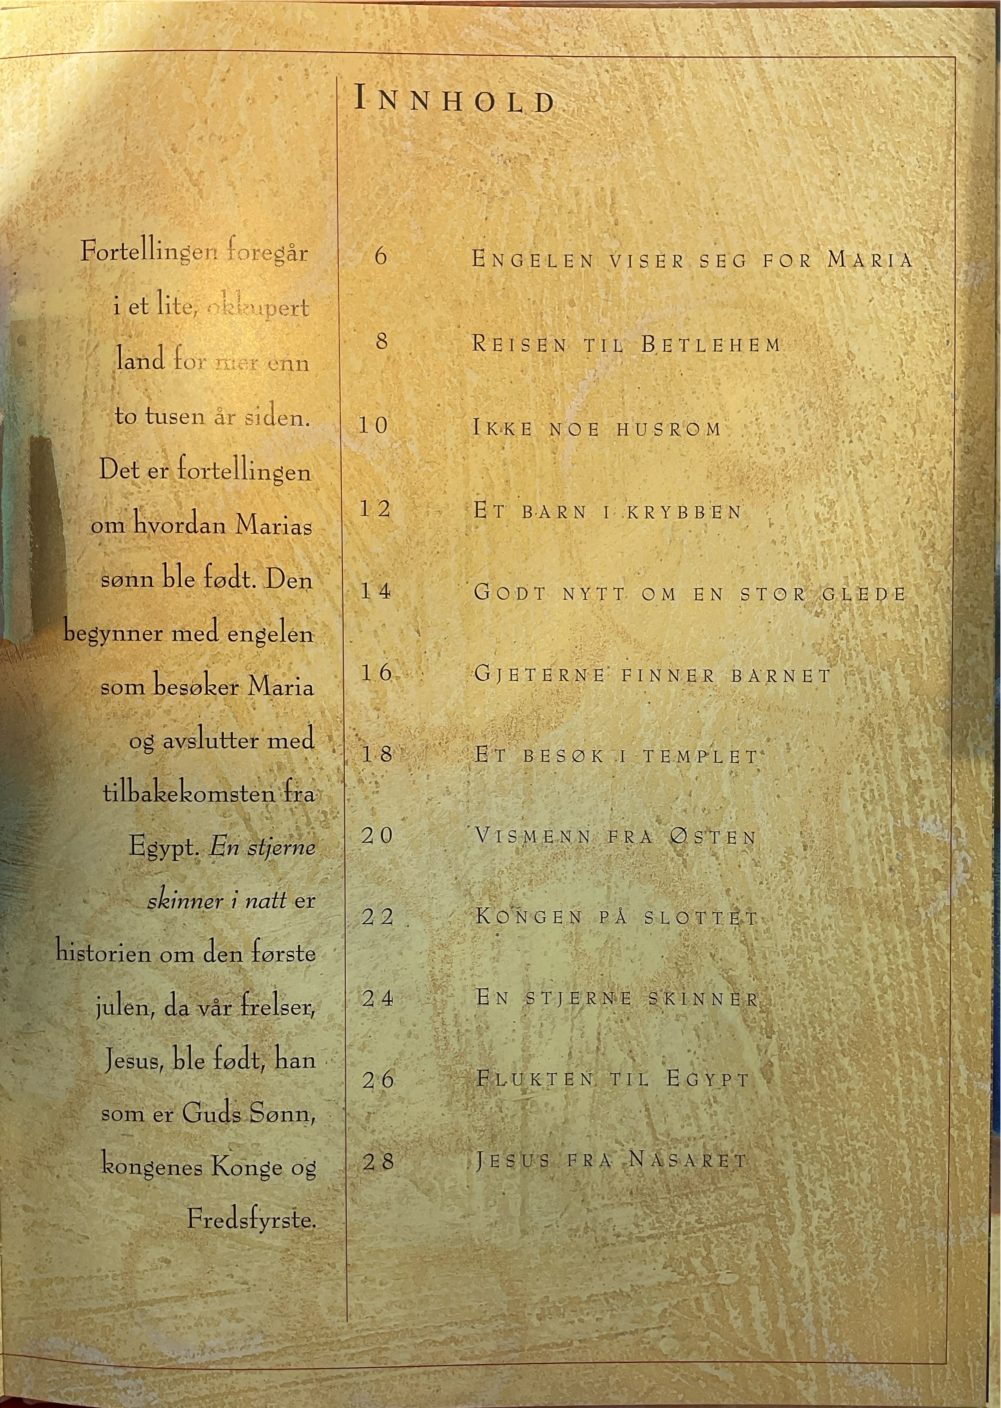 INNHOLD
Fortellingen foregår
i et lite, okkupert
land for mer enn
to tusen år siden.
Det er fortellingen
om hvordan Marias
sønn ble født. Den
begynner med engelen
som besøker Maria
og avslutter med
tilbakekomsten fra
Egypt. En stjerne
skinner i natt er
historien om den første
julen, da vår frelser,
Jesus, ble født, han
som er Guds Sønn,
kongenes Konge og
Fredsfyrste.
6 ENGELEN VISER SEG FOR MARIA
8 REISEN TIL BETLEHEM
10 IKKE NOE HUSROM
12 ET BARN I KRYBBEN
14 GODT NYTT OM EN STOR GLEDE
16 GJETERNE FINNER BARNET
18 ET BESØK I TEMPLET
20 VISMENN FRA ØSTEN
22 KONGEN PÅ SLOTTET
24 EN STJERNE SKINNER
26 FLUKTEN TIL EGYPT
28 JESUS FRA NASARET